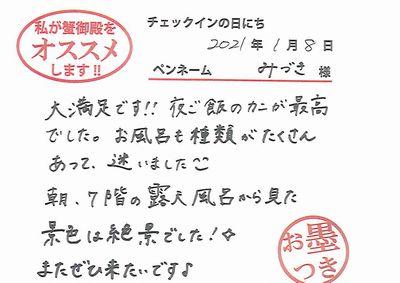 私が蟹御殿を
オススメ
します!!
チェックインの日にち
2021年1月8日
ペンネーム みづき 様
大満足です!! 夜ご飯のカニが最高
でした。お風呂も種類がたくさん
あって、迷いました
朝、7階の露天風呂から見た
景色は絶景でした!✧
またぜひ来たいです♪
お墨
つき